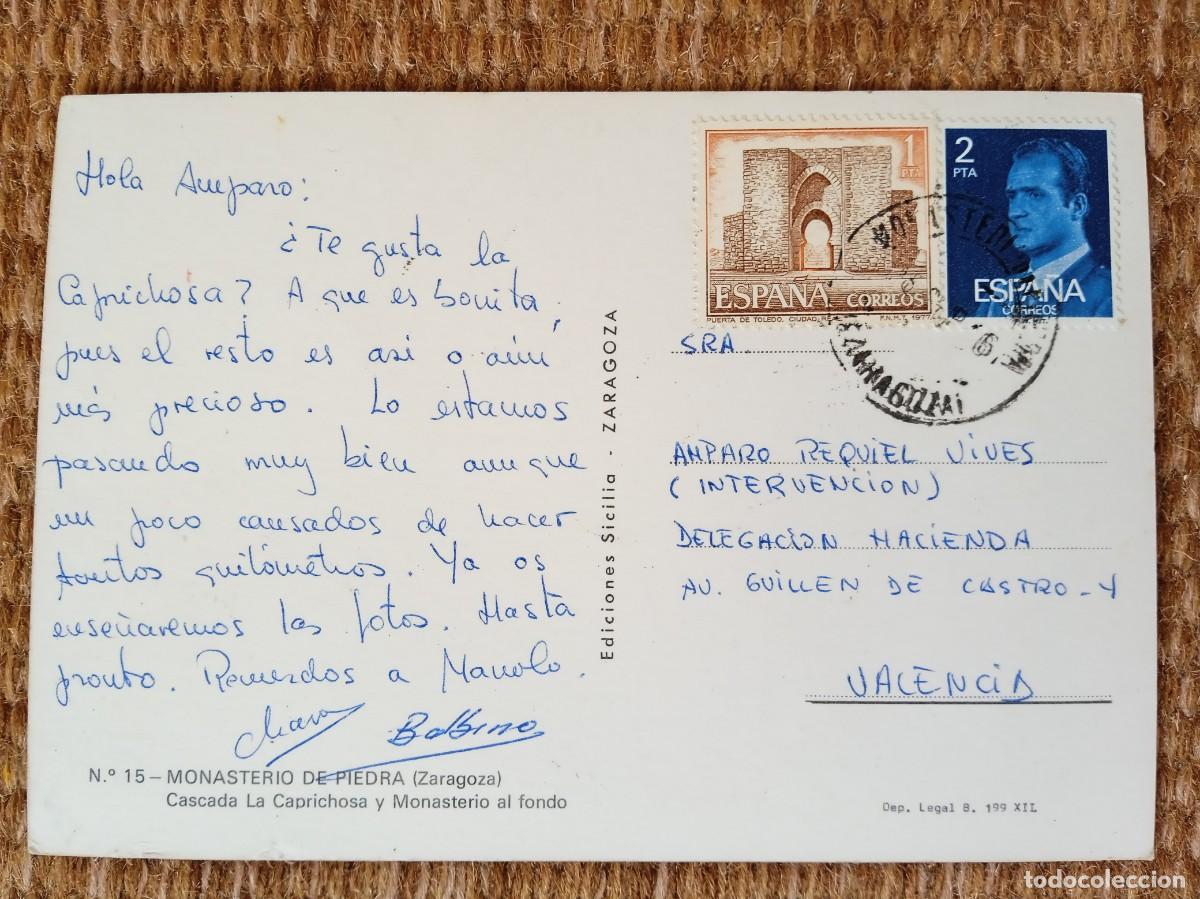 Hola Amparo:
¿Te gusta la
Caprichosa? A que es bonita,
pues el resto es asi o aún
más precioso. Lo estamos
pasando muy bien aunque
un poco cansados de hacer
tantos quilómetros. Ya os
enseñaremos las fotos. Hasta
pronto. Recuerdos a Manolo.
Balbino
N.º 15 – MONASTERIO DE PIEDRA (Zaragoza)
Cascada La Caprichosa y Monasterio al fondo
Ediciones Sicilia - ZARAGOZA
1 PTA
ESPAÑA CORREOS
PUERTA DE TOLEDO. CIUDAD REAL F.N.M.T. 1977
2
PTA
ESPAÑA
CORREOS
SRA.
AMPARO REQUIEL VIVES
(INTERVENCION)
DELEGACION HACIENDA
AV. GUILLEN DE CASTRO - 4
VALENCIA
Dep. Legal B. 199 XII
todocoleccion